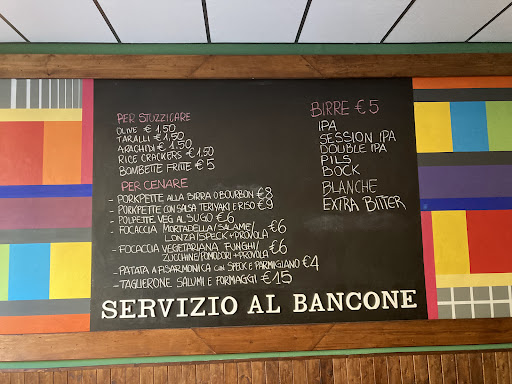 PER STUZZICARE
OLIVE €1,50
TARALLI €1,50
ARACHIDI €1,50
RICE CRACKERS €1,50
BOMBETTE FRITTE €5
PER CENARE
- PORKPETTE ALLA BIRRA O BOURBON €8
- PORKPETTE CON SALSA TERIYAKI E RISO €9
- POLPETTE VEG AL SUGO €6
- FOCACCIA MORTADELLA/SALAME/
LONZA/SPECK + PROVOLA €6
- FOCACCIA VEGETARIANA FUNGHI/
ZUCCHINE/POMODORI + PROVOLA €6
- PATATA A FISARMONICA CON SPECK E PARMIGIANO €4
- TAGLIERONE SALUMI E FORMAGGI €15
BIRRE €5
IPA
SESSION IPA
DOUBLE IPA
PILS
BOCK
BLANCHE
EXTRA BITTER
SERVIZIO AL BANCONE